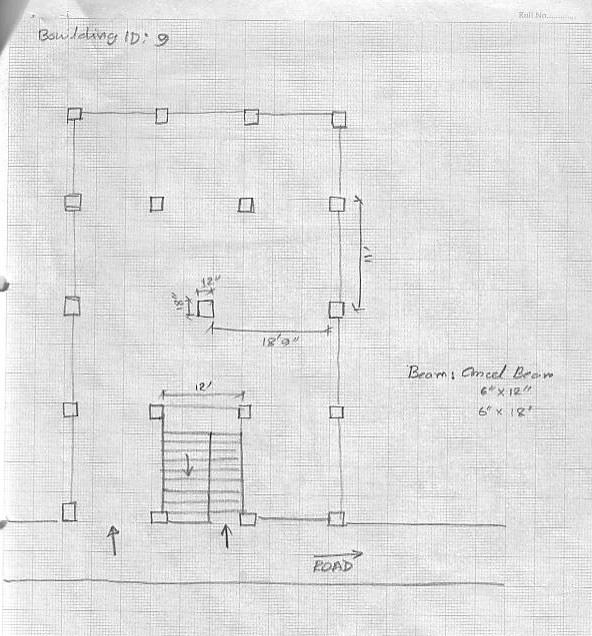 Roll No..........
Bowlding ID: 9
12"
18"
11'
18'9"
12'
Beam: Oncel Beam
6" x 12"
6" x 18'
ROAD